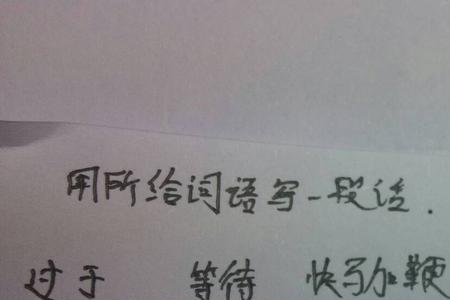 用所给词语写一段话.
过于 等待 快马加鞭